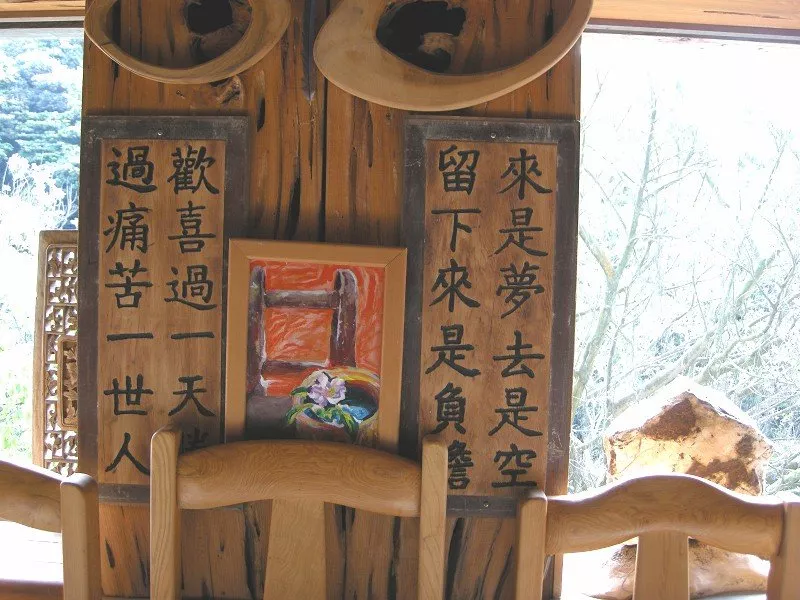 來是夢去是空
留下來是負擔
歡喜過一天勝
過痛苦一世人